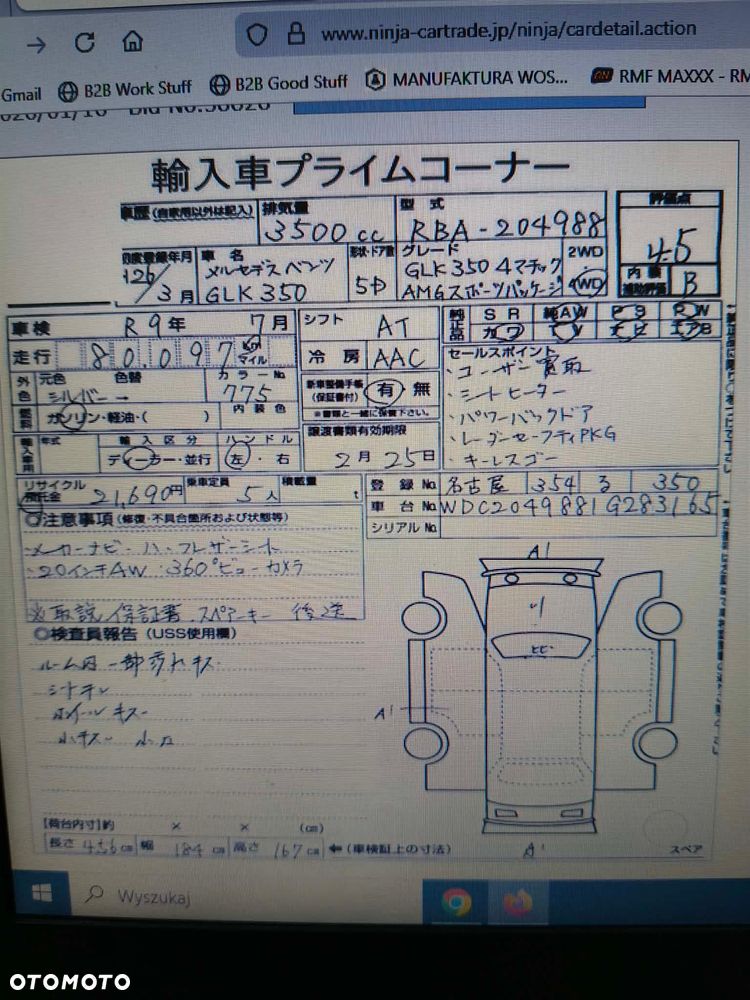 www.ninja-cartrade.jp/ninja/cardetail.action
Gmail B2B Work Stuff B2B Good Stuff MANUFAKTURA WOS... RMF MAXXX - RM
輸入車プライムコーナー
車歴(自家用以外は記入) 排気量 型式 評価点
3500cc RBA-204988 4.5
初度登録年月 車名 形状・ドア数 グレード 2WD
メルセデスベンツ GLK350 4マチック 内装 B
3月 GLK350 5D AMGスポーツパッケージ 4WD 補助評価
車検 R9年 7月 シフト AT 純正品 SR 純AW PS PW
カワ TV ナビ エアB
走行 80.097 Km マイル 冷房 AAC セールスポイント
・ユーザー買取
外色 元色 色替 カラーNo 新車整備手帳 有・無 ・シートヒーター
シルバー→ 775 (保証書付) ※書類と一緒に保管下さい。
燃料 ガソリン・軽油・( ) 内装色 譲渡書類有効期限 ・パワーバックドア
輸入車用 年式 輸入区分 ハンドル ・レーダーセーフティPKG
ディーラー・並行 左・右 2月25日 ・キーレスゴー
リサイクル預託金 21,690円 乗車定員 5人 積載量 t 登録No 名古屋 354 る 350
車台No WDC2049881G283165
◎注意事項(修復・不具合箇所および状態等) シリアルNo
・メーカーナビ・ハーフレザーシート
・20インチAW・360°ビューカメラ
※取説 保証書.スペアーキー 後送
◎検査員報告(USS使用欄)
ルーム内一部汚れキズ
シートスレ
ホイールキズ
小キズ 小凹
A1
ヒビ
A1
A1
【荷台内寸】約 × × (cm)
長さ 456cm 幅 184cm 高さ 167cm ←(車検証上の寸法) スペア
Wyszukaj
OTOMOTO